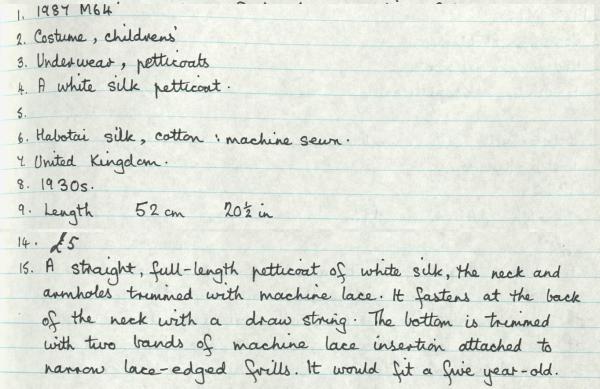 1. 1987 M64
2. Costume, childrens'
3. Underwear, petticoats
4. A white silk petticoat.
5.
6. Habotai silk, cotton : machine sewn.
7. United Kingdom.
8. 1930s.
9. Length 52 cm 20½ in
14. £5
15. A straight, full-length petticoat of white silk, the neck and
armholes trimmed with machine lace. It fastens at the back
of the neck with a draw string. The bottom is trimmed
with two bands of machine lace insertion attached to
narrow lace-edged frills. It would fit a five year-old.